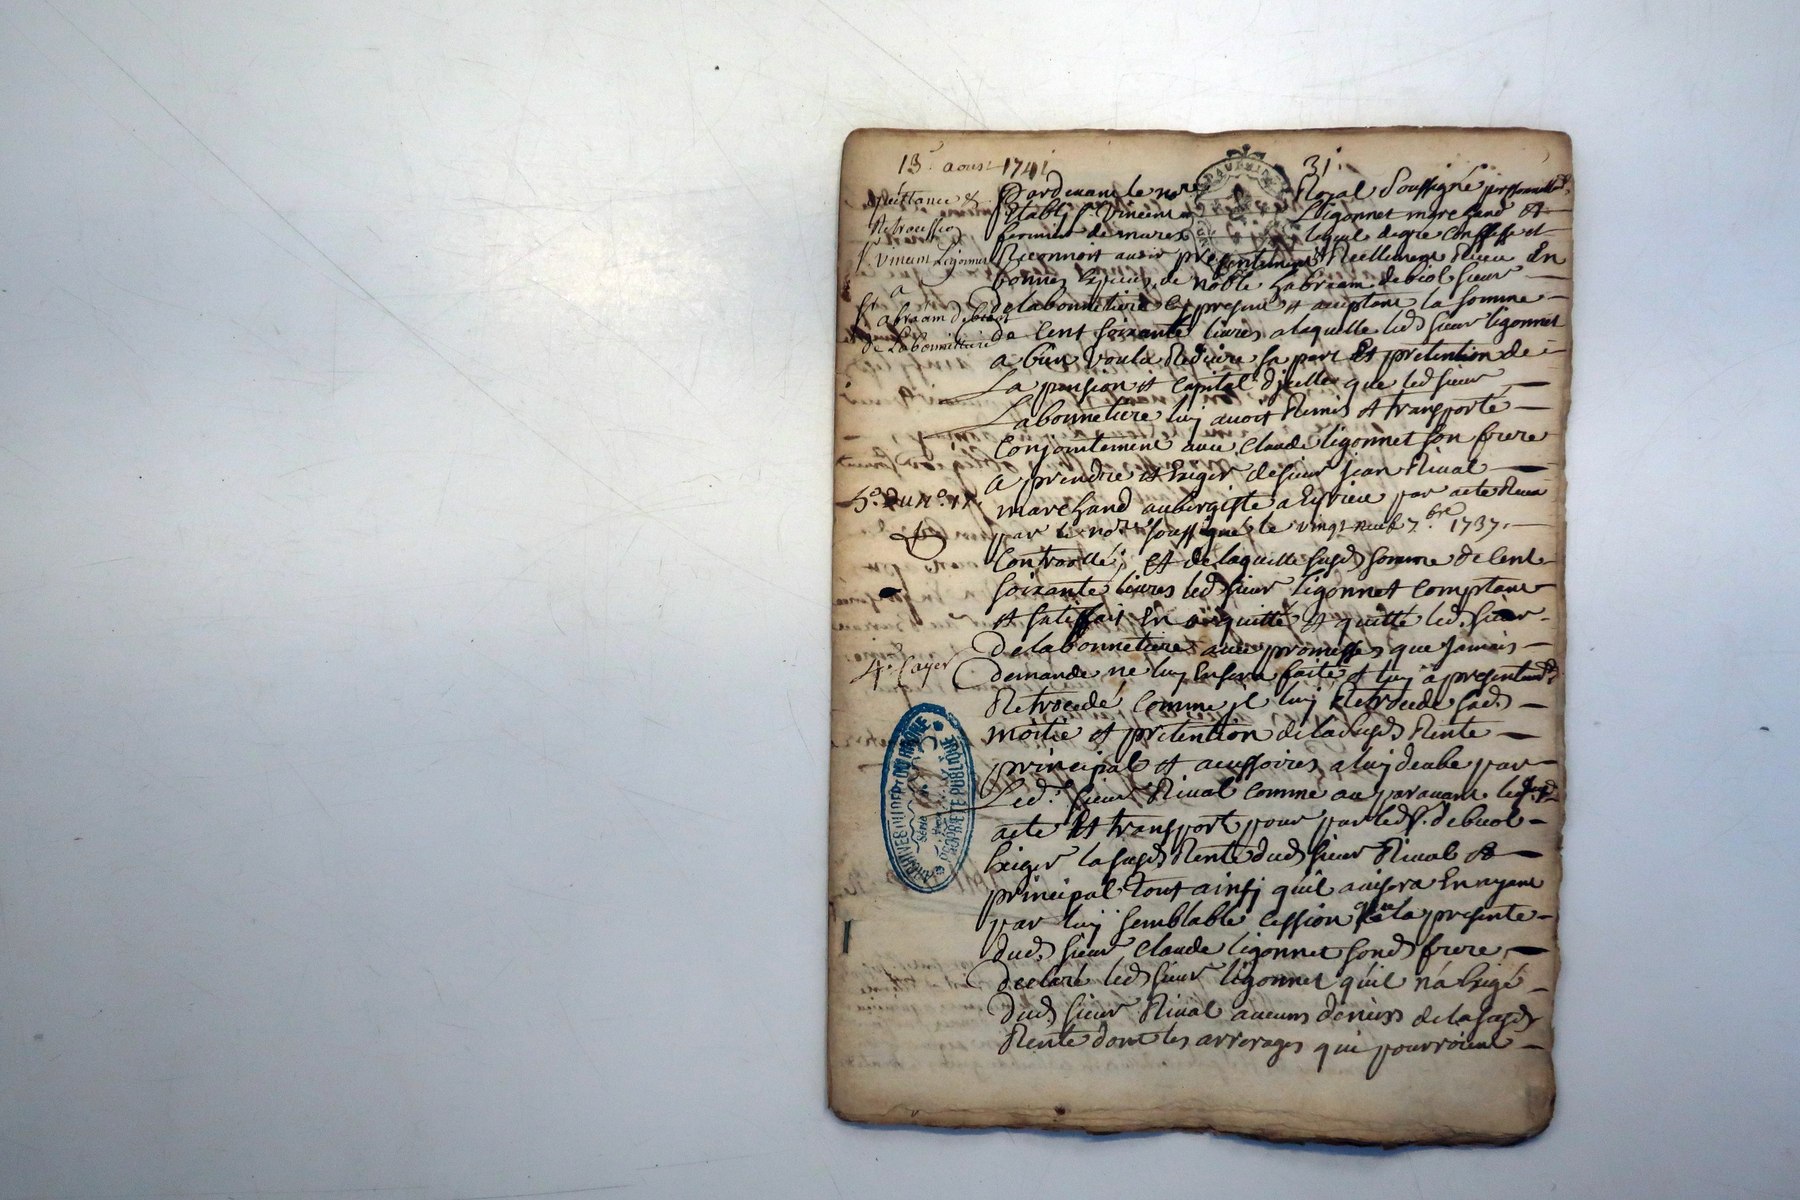 13.e aoust 1741
31
quittance &
Retrocession
Sr. Vincent Ligonnet
a
Sr. abraam debiol
de Labonnetiere
5.e du n.o 11.
4.e Cayer
ARCHIVES DU DEPT DU RHONE
PROPRIETE PUBLIQUE
Pardevant le no.re Royal soussigné
Etably Sr. Vincent Ligonnet marchand et
fermier de mures lequel de gré confesse et
Reconnoit avoir presentement Reellement Receu En
bonnes Especes, de noble habraam debiol sieur
de labonnetiere cy present et acceptant la somme
de Cent soixante livres a laquelle led. sieur ligonnet
a bien voulu Reduire sa part Et pretention de
La pension et Capital d'jcelle que led sieur
Labonnetiere luy avoit Remis et transporté
Conjointement avec Claude ligonnet son frere
a prendre et Exiger de sieur jean Rival
marchand aubergiste a par acte Receu
par le no.re soussigné le vingt neuf 7.bre 1737.
Controllé; et de laquelle susd. somme de Cent
soixante livres led sieur ligonnet Comptant
et satisfait En a quitté et quitte led. sieur
de labonnetiere avec promesses que jamais
demande ne luy En sera faite et luy a presentem.t
Retrocedé comme jl luy Retrocede sad.
moitié et pretention de lasusd. Rente
principal et accessoires a luy deube par
Led. sieur Rival comme au paravant led.
acte Et transport pour par led Sr. debiol
Exiger lasusd. Rente dud. sieur Rival et
principal tout ainsy quil avisera En ayant
par luy semblable cession que la presente
dud. sieur Claude ligonnet sond. frere,
declare led. sieur ligonnet qu'il n'a Exigé
dud. sieur Rival aucuns deniers de lasusd.
Rente dont les arrerages qui pourroient